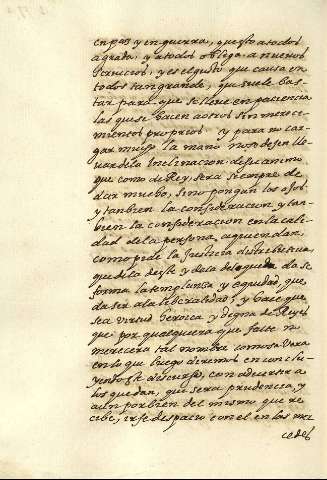 en paz y en guerra, que esto a todos
agrada, y a todos obliga a nueuos
seruicios, y es el gusto que causa en
todos tan grande, que suele bas-
tar para que se lleue en paciencia
las que se hacen a otros sin mereci-
mientos proprios. y para no car-
gar mucho la mano no se dejen lle-
uar de la Inclinacion de su animo
que como de Rey, sera siempre de
dar mucho, sino pongan los ojos
y tanbien la consideracion, y tan-
bien la consideracion en la cali-
dad de la persona, a quien dan,
como pide la Justicia distributiua
que de la deste y dan
forma la templansa y equidad, que
da ser a la liberalidad, y hace que
sea virtud heroica y digna de Reyes
que por qualquiera que falte no
merecera tal nombre como se vera
en lo que luego diremos en conclu-
yendo este discurso, con aduertir a
los que dan, que sera prudencia, y
aun por bien del mismo que re-
cibe, irse despacio con el en las mer-
cedes